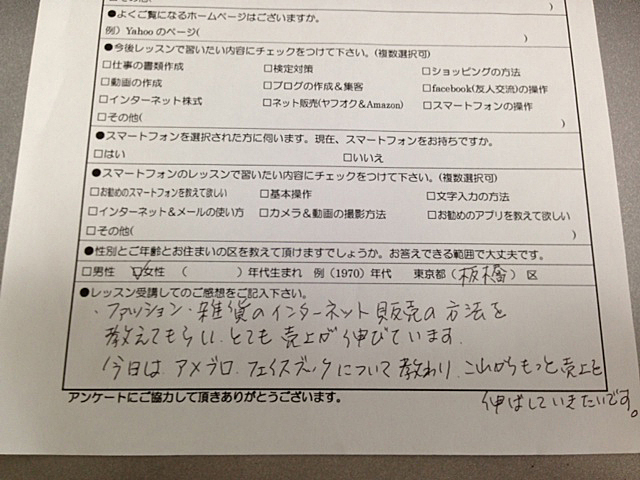 □その他( )
●よくご覧になるホームページはございますか。
例）Yahoo のページ( )
●今後レッスンで習いたい内容にチェックをつけて下さい。(複数選択可)
□仕事の書類作成 □検定対策 □ショッピングの方法
□動画の作成 □ブログの作成＆集客 □facebook(友人交流)の操作
□インターネット株式 □ネット販売(ヤフオク＆Amazon) □スマートフォンの操作
□その他( )
●スマートフォンを選択された方に伺います。現在、スマートフォンをお持ちですか。
□はい □いいえ
●スマートフォンのレッスンで習いたい内容にチェックをつけて下さい。(複数選択可)
□お勧めのスマートフォンを教えて欲しい □基本操作 □文字入力の方法
□インターネット＆メールの使い方 □カメラ＆動画の撮影方法 □お勧めのアプリを教えて欲しい
□その他( )
●性別とご年齢とお住まいの区を教えて頂けますでしょうか。お答えできる範囲で大丈夫です。
□男性 ☑女性 ( )年代生まれ 例（1970）年代 東京都（板橋）区
●レッスン受講してのご感想をご記入下さい。
・ファッション・雑貨のインターネット販売の方法を
教えてもらい、とても売上が伸びています。
今日は、アメブロ、フェイスブックについて教わり、これからもっと売上を
伸ばしていきたいです。
アンケートにご協力して頂きありがとうございます。